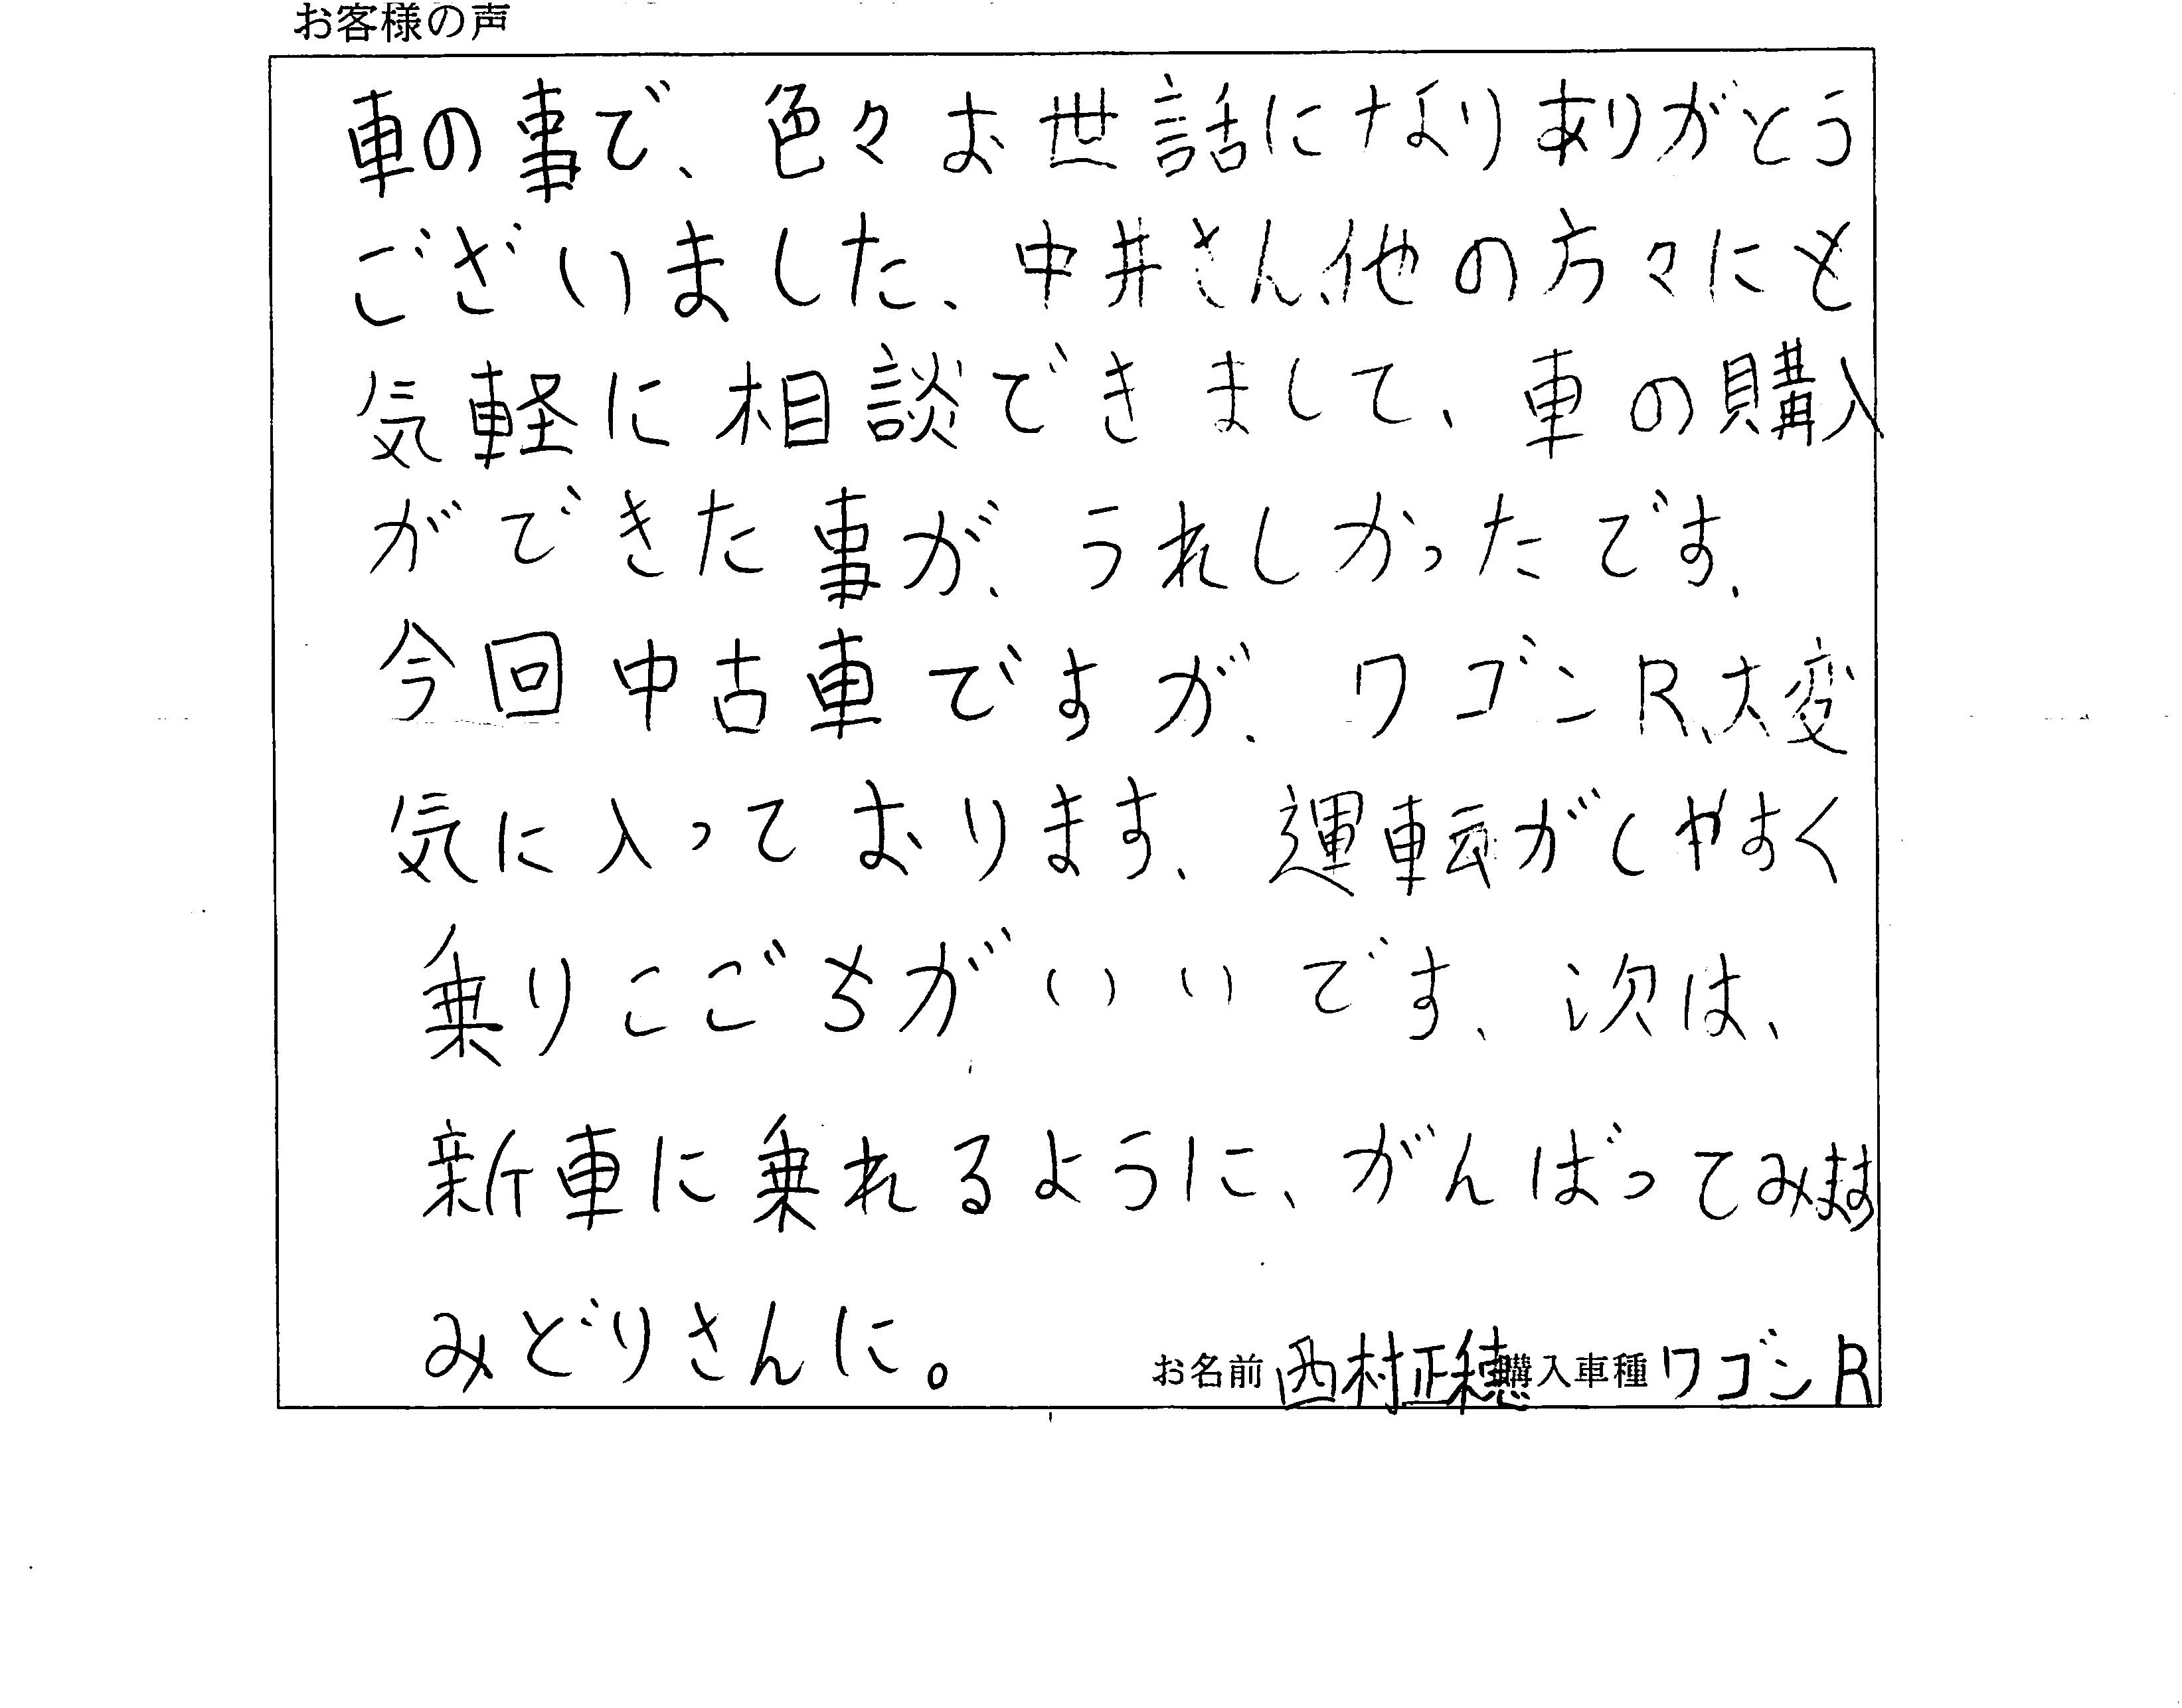 お客様の声
車の事で、色々お世話になりありがとう
ございました、中井さん、他の方々にも
気軽に相談できまして、車の購入
ができた事が、うれしかったです、
今回中古車ですが、ワゴンR、大変
気に入っております、運転がしやすく
乗りここごちがいいです、次は、
新車に乗れるように、がんばってみます
みどりさんに。
お名前 西村正穂 購入車種 ワゴンR